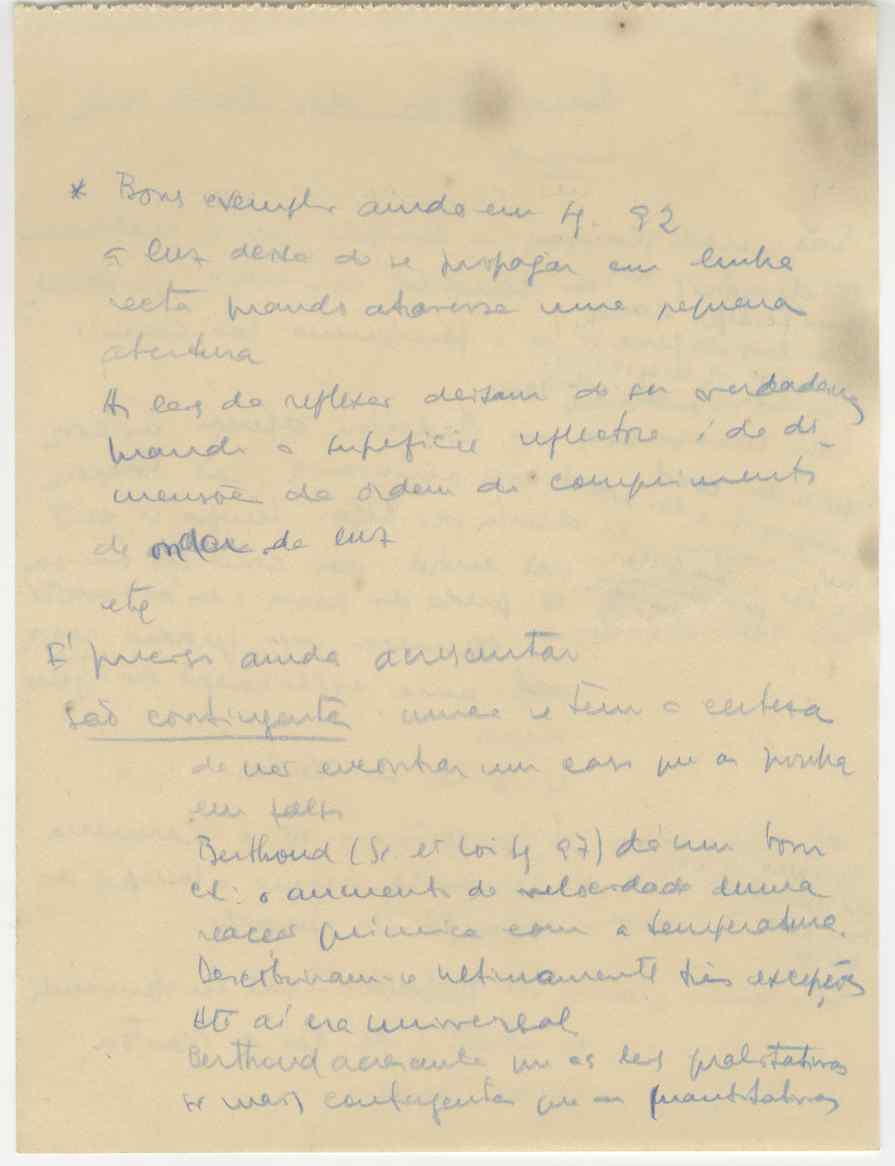 * Bons exemplos ainda em 4. 92
a luz deixa de se propagar em linha
recta quando atravessa uma pequena
abertura
As leis da reflexão deixam de ser verdadeiras
quando a superficie reflectora é de di-
mensões da ordem do comprimento
de onda da luz
etc
É preciso ainda acrescentar
São contingentes nunca se tem a certeza
de não encontrar um caso que as ponha
em falso
Berthoud (Sc. et Loi 97) dá um bom
ex: o aumento de velocidade duma
reacção química com a temperatura.
Descobriram-se ultimamente três excepções
Até aí era universal
Berthoud acrescenta que as leis qualitativas
são mais contingentes que as quantitativas